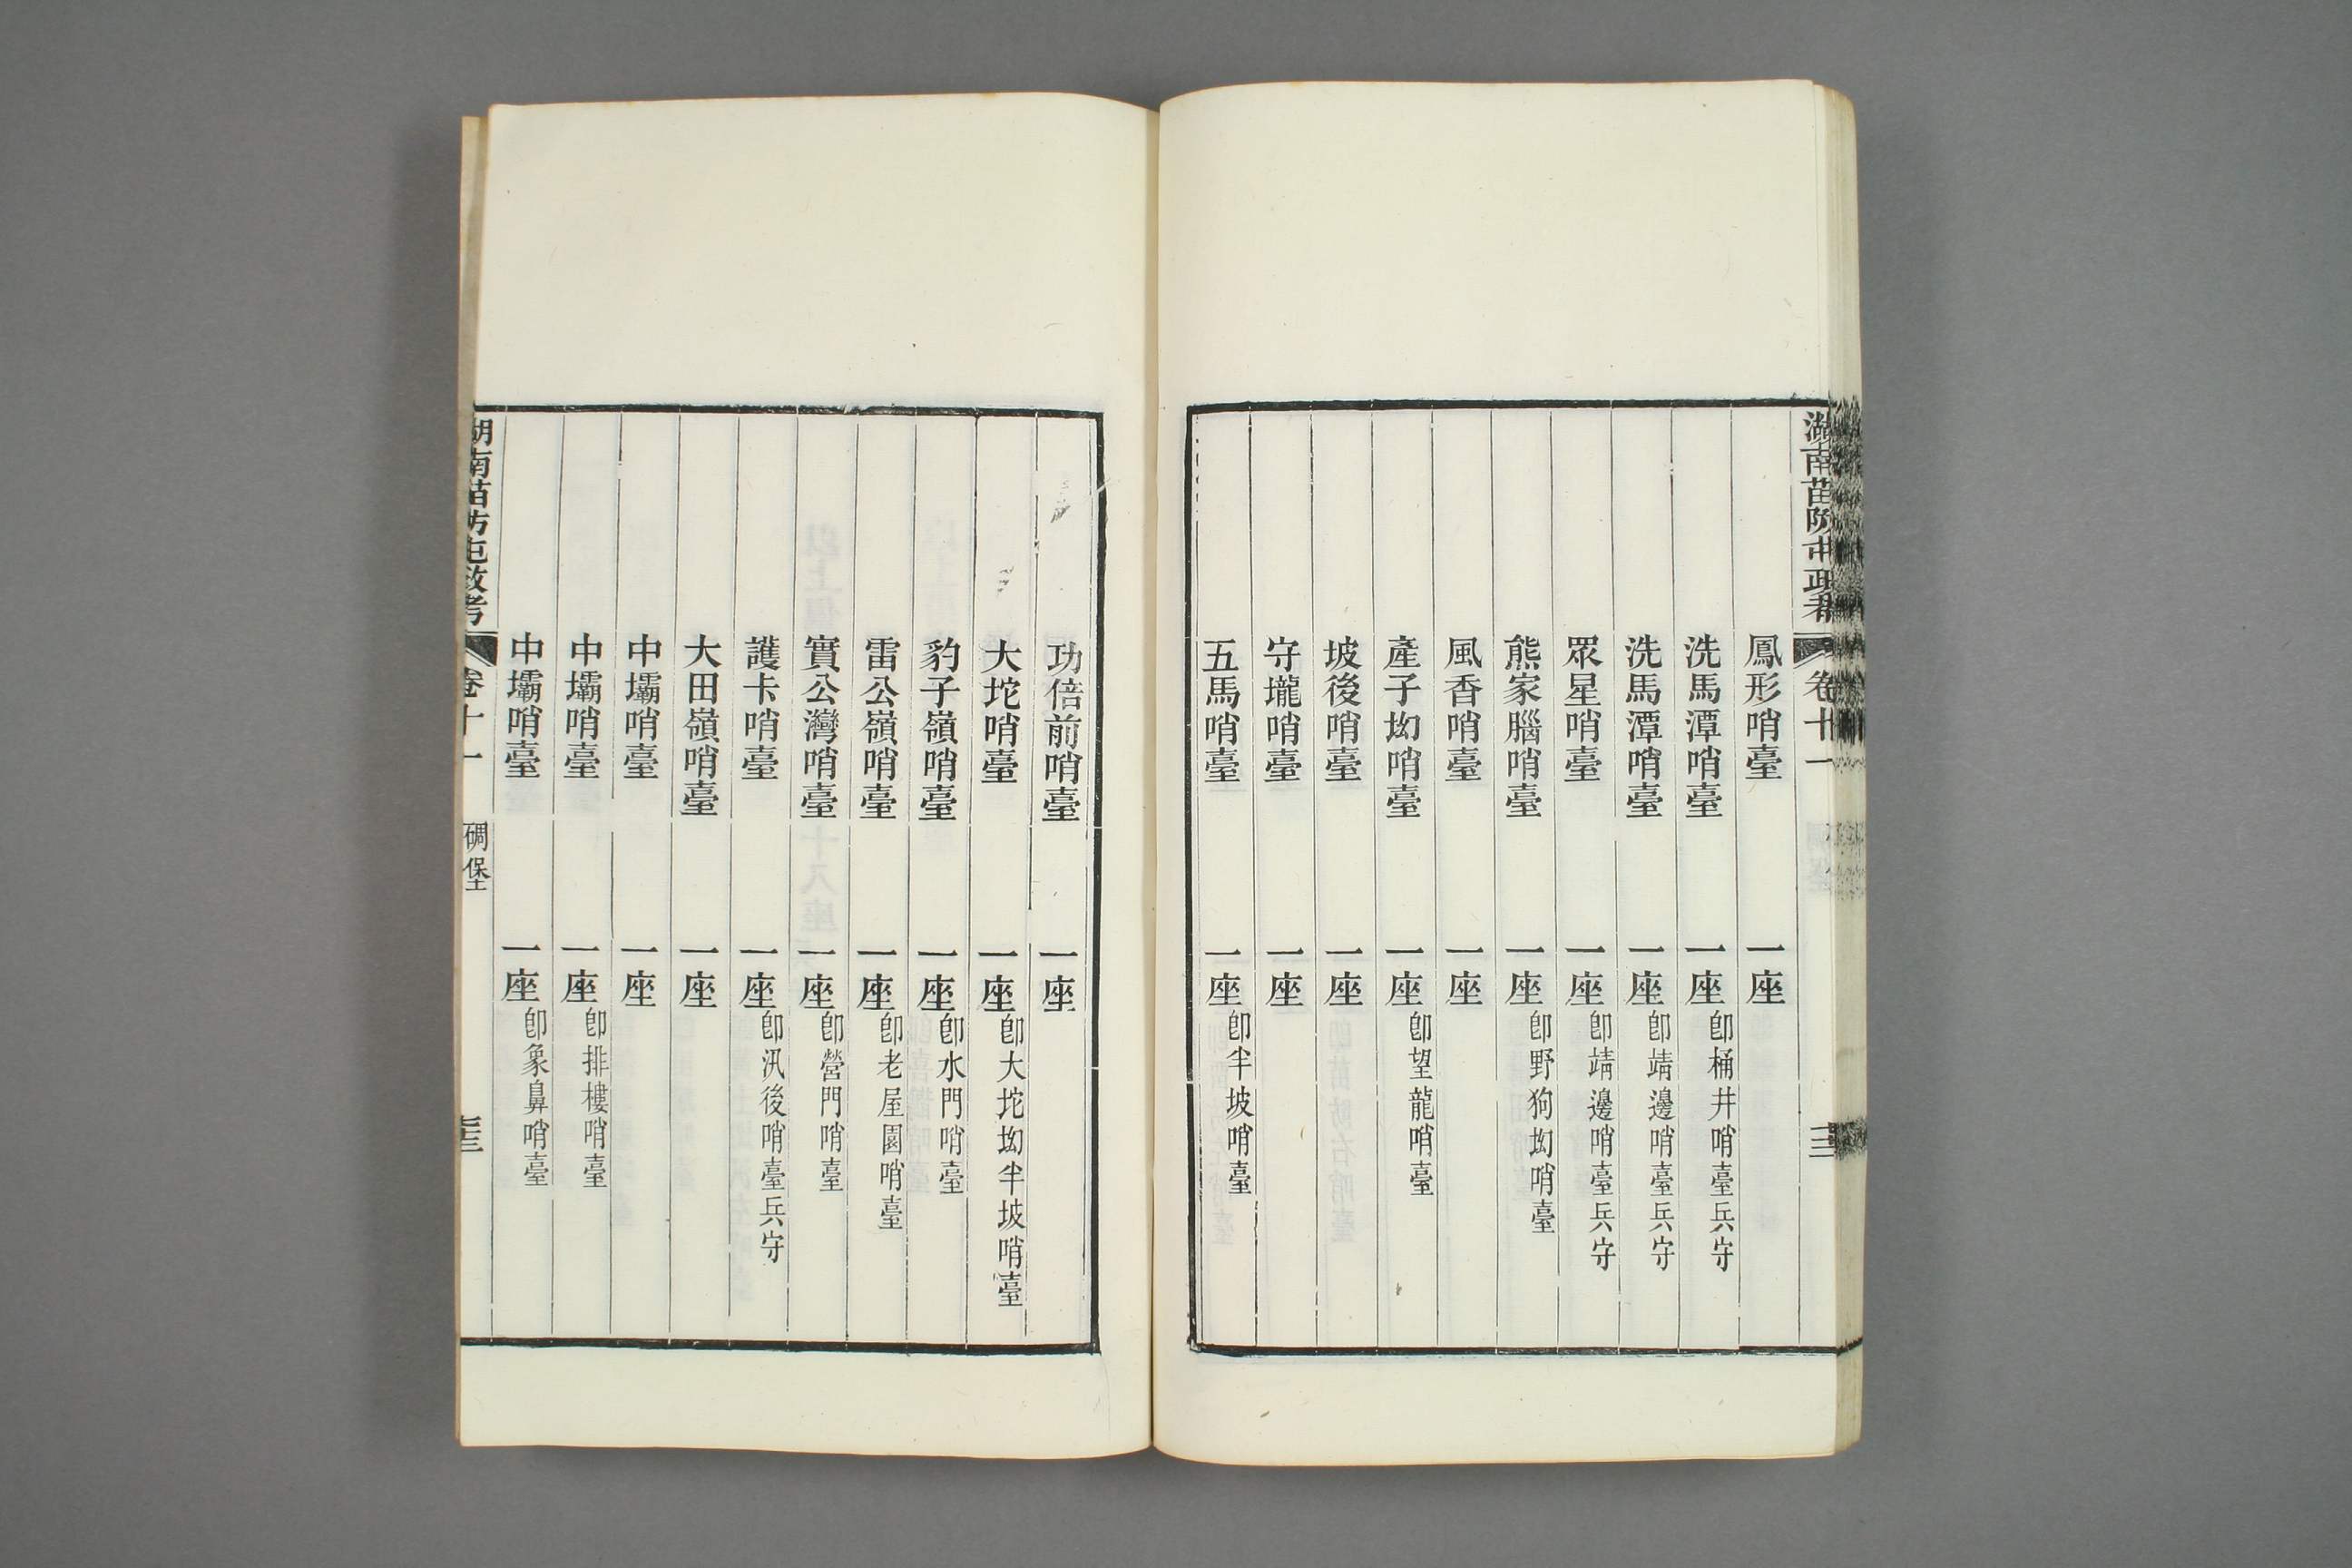 湖南苗防屯政考 卷十一
鳳形哨臺 一座
洗馬潭哨臺 一座 卽桶井哨臺兵守
洗馬潭哨臺 一座 卽靖邊哨臺兵守
眾星哨臺 一座 卽靖邊哨臺兵守
熊家腦哨臺 一座 卽野狗坳哨臺
風香哨臺 一座
產子坳哨臺 一座 卽望龍哨臺
坡後哨臺 一座
守壠哨臺 一座
五馬哨臺 一座 卽半坡哨臺
功倍前哨臺 一座
大坨哨臺 一座 卽大坨坳半坡哨臺
豹子嶺哨臺 一座 卽水門哨臺
雷公嶺哨臺 一座 卽老屋園哨臺
實公灣哨臺 一座 卽營門哨臺
護卡哨臺 一座 卽汛後哨臺兵守
大田嶺哨臺 一座
中壩哨臺 一座
中壩哨臺 一座 卽排樓哨臺
中壩哨臺 一座 卽象鼻哨臺
湖南苗防屯政考 卷十一 碉堡